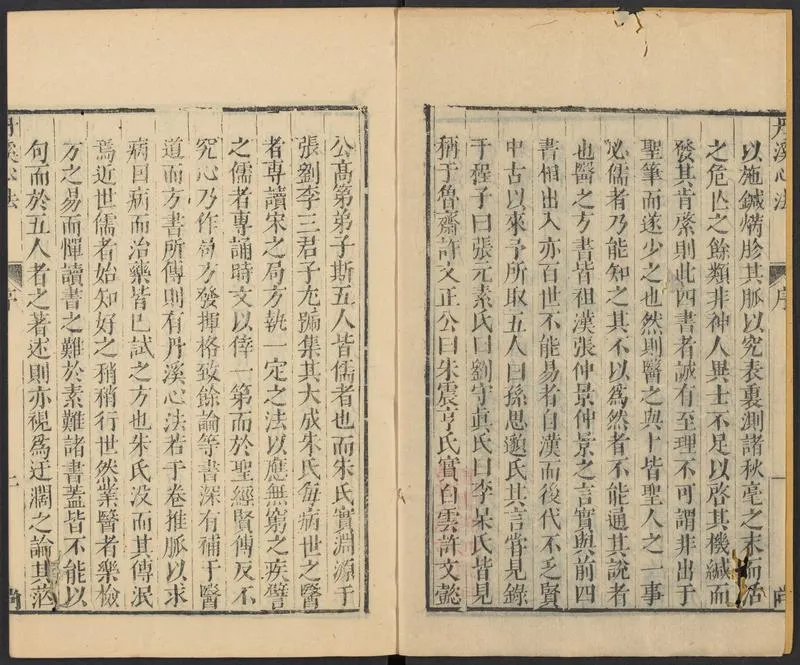 丹溪心法
序
一
以施鍼焫胗其脈以究表裏測諸秋毫之末而活
之危亡之餘類非神人異士不足以啓其機緘而
發其肯綮則此四書者誠有至理不可謂非出于
聖筆而遂少之也然則醫之與卜皆聖人之一事
必儒者乃能知之其不以為然者不能通其說者
也醫之方書皆祖漢張仲景仲景之言實與前四
書相出入亦百世不能易者自漢而後代不乏賢
中古以來予所取五人曰孫思邈氏其言嘗見錄
于程子曰張元素氏曰劉守眞氏曰李杲氏皆見
稱于魯齋許文正公曰朱震亨氏實白雲許文懿
公高第弟子斯五人皆儒者也而朱氏實淵源于
張劉李三君子尤號集其大成朱氏每病世之醫
者專讀宋之局方執一定之法以應無窮之疾譬
之儒者專誦時文以倖一第而於聖經賢傳反不
究心乃作局方發揮格致餘論等書深有補于醫
道而方書所傳則有丹溪心法若干卷推脈以求
病因病而治藥皆已試之方也朱氏没而其傳泯
焉近世儒者始知好之稍稍行世然業醫者樂檢
方之易而憚讀書之難於素難諸書蓋皆不能以
句而於五人者之著述則亦視為迂濶之論其茫
丹溪心法
序
二